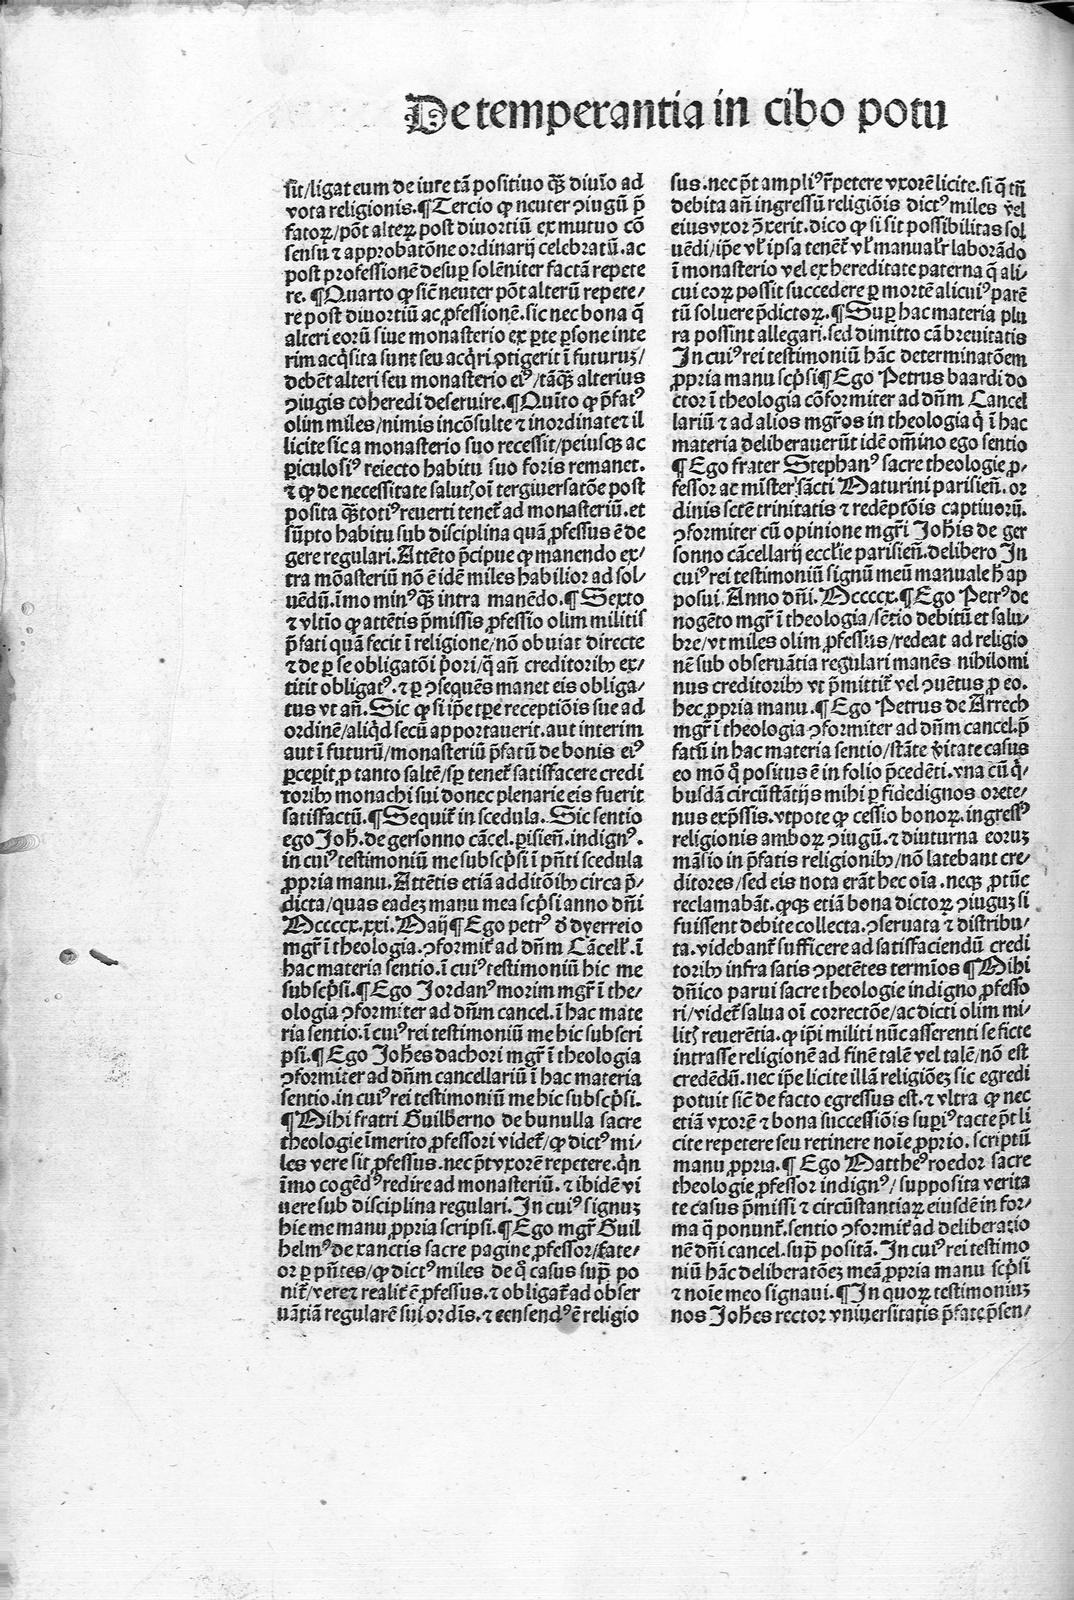 De temperantia in cibo potu
sit/ligat eum de iure tã positiuo q̃ȝ diuĩo ad
vota religionis.¶Tercio ꝙ neuter ꝯiugũ p̃
fatoꝝ/põt alteꝝ post diuortiũ ex mutuo cõ
sensũ ⁊ approbatõne ordinarij celebratũ.ac
post professionẽ desuꝑ solẽniter factã repete
re.¶Quarto ꝙ sicẽ neuter põt alterũ repete/
re post diuortiũ ac ꝓfessionẽ.sic nec bona q̃
alteri eorũ siue monasterio ex ꝑte ꝑsone inte
rim acq̃sita sunt seu acq̃ri ꝯtigerit ĩ futuruȝ/
debẽt alteri seu monasterio eiꝰ/tãq̃ȝ alterius
ꝯiugis coheredi deseruire.¶Quĩto ꝙ p̃fatꝰ
olim miles/nimis incõsulte ⁊ inordinate ⁊ il
licite sic a monasterio suo recessit/peiusqȝ ac
ꝑiculosiꝰ reiecto habitu suo foris remanet.
⁊ ꝙ de necessitate salutꝭ oĩ tergiuersatõe post
posita q̃ȝtotiꝰ reuerti tenet̃ ad monasteriũ.et
sũpto habitu sub disciplina quã ꝓfessus ẽ de
gere regulari.Attẽto p̃cipue ꝙ manendo ex/
tra mõasteriũ nõ ẽ idẽ miles habilior ad sol/
uẽdũ.ĩmo minꝰ q̃ȝ intra manẽdo.¶Sexto
⁊ vltĩo ꝙ attẽtis p̃missis ꝓfessio olim militis
p̃fati quã fecit ĩ religione/nõ obuiat directe
⁊ de ꝑ se obligatõi p̃ori/q̃ añ creditoribꝫ ex/
titit obligatꝰ.⁊ ꝑ ꝯsequẽs manet eis obliga/
tus vt añ.Sic ꝙ si ip̃e tꝑe receptiõis sue ad
ordinẽ/aliq̃d secũ apportauerit.aut interim
aut ĩ futurũ/monasteriũ p̃fatũ de bonis eiꝰ
ꝑceꝑit ꝓ tanto saltẽ/sꝑ tenet̃ satisfacere credi
toribꝫ monachi sui donec plenarie eis fuerit
satisfactũ.¶Sequit̃ in scedula. Sic sentio
ego Joh̃.de gersonno cãcel.ꝑisieñ.indignꝰ.
in cuiꝰ testimoniũ me subscp̃si ĩ pñti scedula
ꝓpria manu.Attẽtis etiã additõibꝫ circa p̃/
dicta/quas eadeȝ manu mea scp̃si anno dñi
Mccccx.xxi.Maij¶Ego petrꝰ ð dyerreio
mgr̃ ĩ theologia.ꝯformit̃ ad dñm Cãcell̃.ĩ
hac materia sentio.ĩ cuiꝰ testimoniũ hic me
subscp̃si.¶Ego Jordanꝰ morim mgr̃ ĩ the/
ologia ꝯformiter ad dñm cancel.ĩ hac mate
ria sentio.ĩ cuiꝰ rei testimoniũ me hic subscri
psi.¶Ego Joh̃es dachori mgr̃ ĩ theologia
ꝯformiter ad dñm cancellariũ ĩ hac materia
sentio.in cuiꝰ rei testimoniũ me hic subscp̃si.
¶Mihi fratri Guilberno de bunulla sacre
theologie ĩmerito ꝓfessori videt̃/ꝙ dictꝰ mi/
les vere sit ꝓfessus.nec p̃t vxorẽ repetere.q̃n
ĩmo cogẽdꝰ redire ad monasteriũ.⁊ ibidẽ vi
uere sub disciplina regulari.In cuiꝰ signuȝ
hic me manu ꝓpria scripsi.¶Ego mgr̃ Guil
helmꝰ de xanctis sacre pagine ꝓfessor/fate/
or ꝑ pñtes/ꝙ dictꝰ miles de q̃ casus sup̃ po
nit̃/vere ⁊ realit̃ ẽ ꝓfessus.⁊ obligat̃ ad obser
uãtiã regularẽ sui ordĩs.⁊ censendꝰ ẽ religio
sus.nec p̃t ampliꝰ r̃petere vxorẽ licite.si q̃ tñ
debita añ ingressũ religiõis dictꝰ miles vel
eius vxor ꝯ̃xerit.dico ꝙ si sit possibilitas sol
uẽdi/ip̃e vl̃ ipsa tenet̃ vl̃ manualr̃ laborãdo
ĩ monasterio vel ex hereditate paterna q̃ ali/
cui eoꝝ possit succedere ꝑ mortẽ alicuiꝰ parẽ
tũ soluere p̃dictoꝝ.¶Suꝑ hac materia plu
ra possint allegari.sed dimitto cã breuitatis
In cuiꝰ rei testimoniũ hãc determinatõem
ꝓpria manu scp̃si¶Ego Petrus baardi do
ctor ĩ theologia cõformiter ad dñm Cancel
lariũ ⁊ ad alios mgr̃os in theologia q̃ ĩ hac
materia deliberauerũt idẽ om̃ino ego sentio
¶Ego frater Stephanꝰ sacre theologie ꝓ/
fessor ac mĩster sãcti Maturini parisieñ.or
dinis sctẽ trinitatis ⁊ redẽptõis captiuorũ.
ꝯformiter cũ opinione mgr̃i Joh̃is de ger
sonno cãcellarij eccl̃ie parisieñ.delibero In
cuiꝰ rei testimoniũ signũ meũ manuale h̃ ap
posui.Anno dñi.Mccccx.¶Ego Petrꝰ de
nogẽto mgr̃ ĩ theologia/sẽtio debitũ et salu/
bre/vt miles olim ꝓfessus/redeat ad religio
nẽ sub obseruãtia regulari manẽs nihilomi
nus creditoribꝫ vt p̃mittit̃ vel ꝯuẽtus ꝓ eo.
hec ꝓpria manu.¶Ego Petrus de Arrech
mgr̃ ĩ theologia ꝯformiter ad dñm cancel.p̃
fatũ in hac materia sentio/stãte ṽitate casus
eo mõ q̃ positus ẽ in folio p̃cedẽti.vna cũ q̃/
busdã circũstãtijs mihi ꝑ fidedignos orete/
nus exp̃ssis.vtpote ꝙ cessio bonoꝝ.ingressꝰ
religionis amboꝝ ꝯiugũ.⁊ diuturna eoruȝ
mãsio in p̃fatis religionibꝫ/nõ latebant cre/
ditores/sed eis nota erãt hec oĩa.neqȝ ꝓtũc
reclamabãt.ꝙqȝ etiã bona dictoꝝ ꝯiuguȝ si
fuissent debite collecta.ꝯseruata ⁊ distribu/
ta.videbant̃ sufficere ad satisfaciendũ credi
toribꝫ infra satis ꝯpetẽtes termĩos ¶Mihi
dñico parui sacre theologie indigno ꝓfesso
ri/videt̃ salua oĩ correctõe/ac dicti olim mi/
litꝭ reuerẽtia.ꝙ ip̃i militi nũc asserenti se ficte
intrasse religionẽ ad finẽ talẽ vel talẽ/nõ est
credẽdũ.nec ip̃e licite illã religiõeȝ sic egredi
potuit sicẽ de facto egressus est.⁊ vltra ꝙ nec
etiã vxorẽ ⁊ bona successiõis supiꝰ tacte p̃t li
cite repetere seu retinere noĩe ꝓprio.scriptũ
manu ꝓpria.¶Ego Mattheꝰ roedor sacre
theologie ꝓfessor indignꝰ/supposita verita
te casus p̃missi ⁊ circũstantiaꝝ eiusdẽ in for/
ma q̃ ponunt̃.sentio ꝯformit̃ ad deliberatio
nẽ dñi cancel.sup̃ positã.In cuiꝰ rei testimo
niũ hãc deliberatõeȝ meã ꝓpria manu scp̃si
⁊ noĩe meo signaui.¶In quoꝝ testimoniuȝ
nos Joh̃es rector vniuersitatis p̃fate p̃sen/